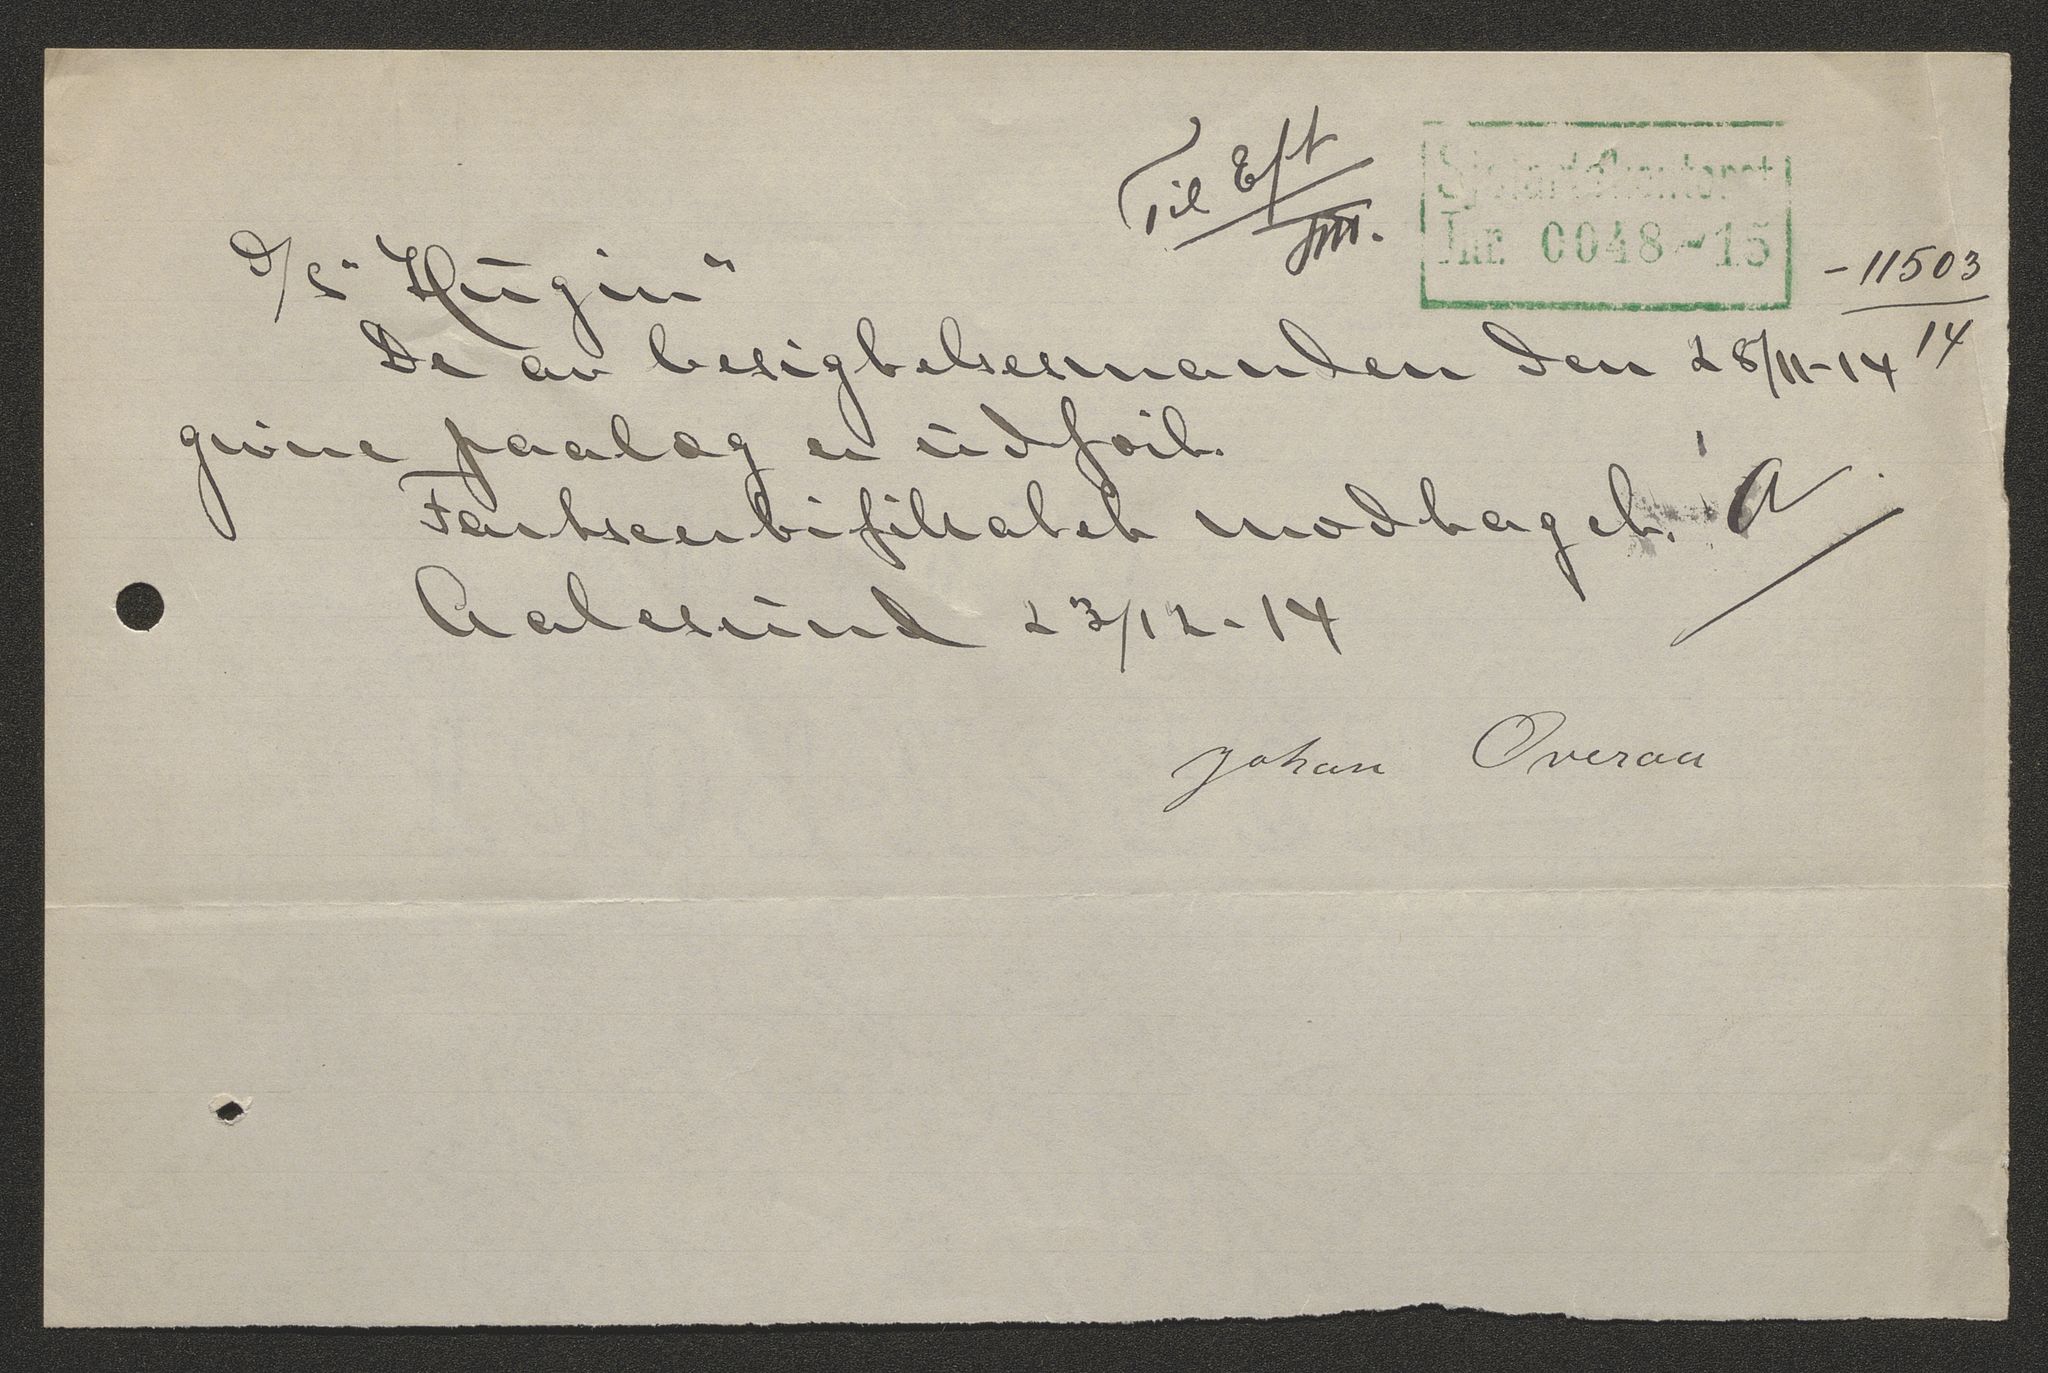 Til Eft
Sjøfartskontoret
Jnr. 0048-15
- 11503
14
D/S "Hugin"
De av besigtelsesmanden den 28/11-14
givne paalæg er udført.
Fartscertifikatet modtaget.
Aalesund 23/12-14
Johan Overaa